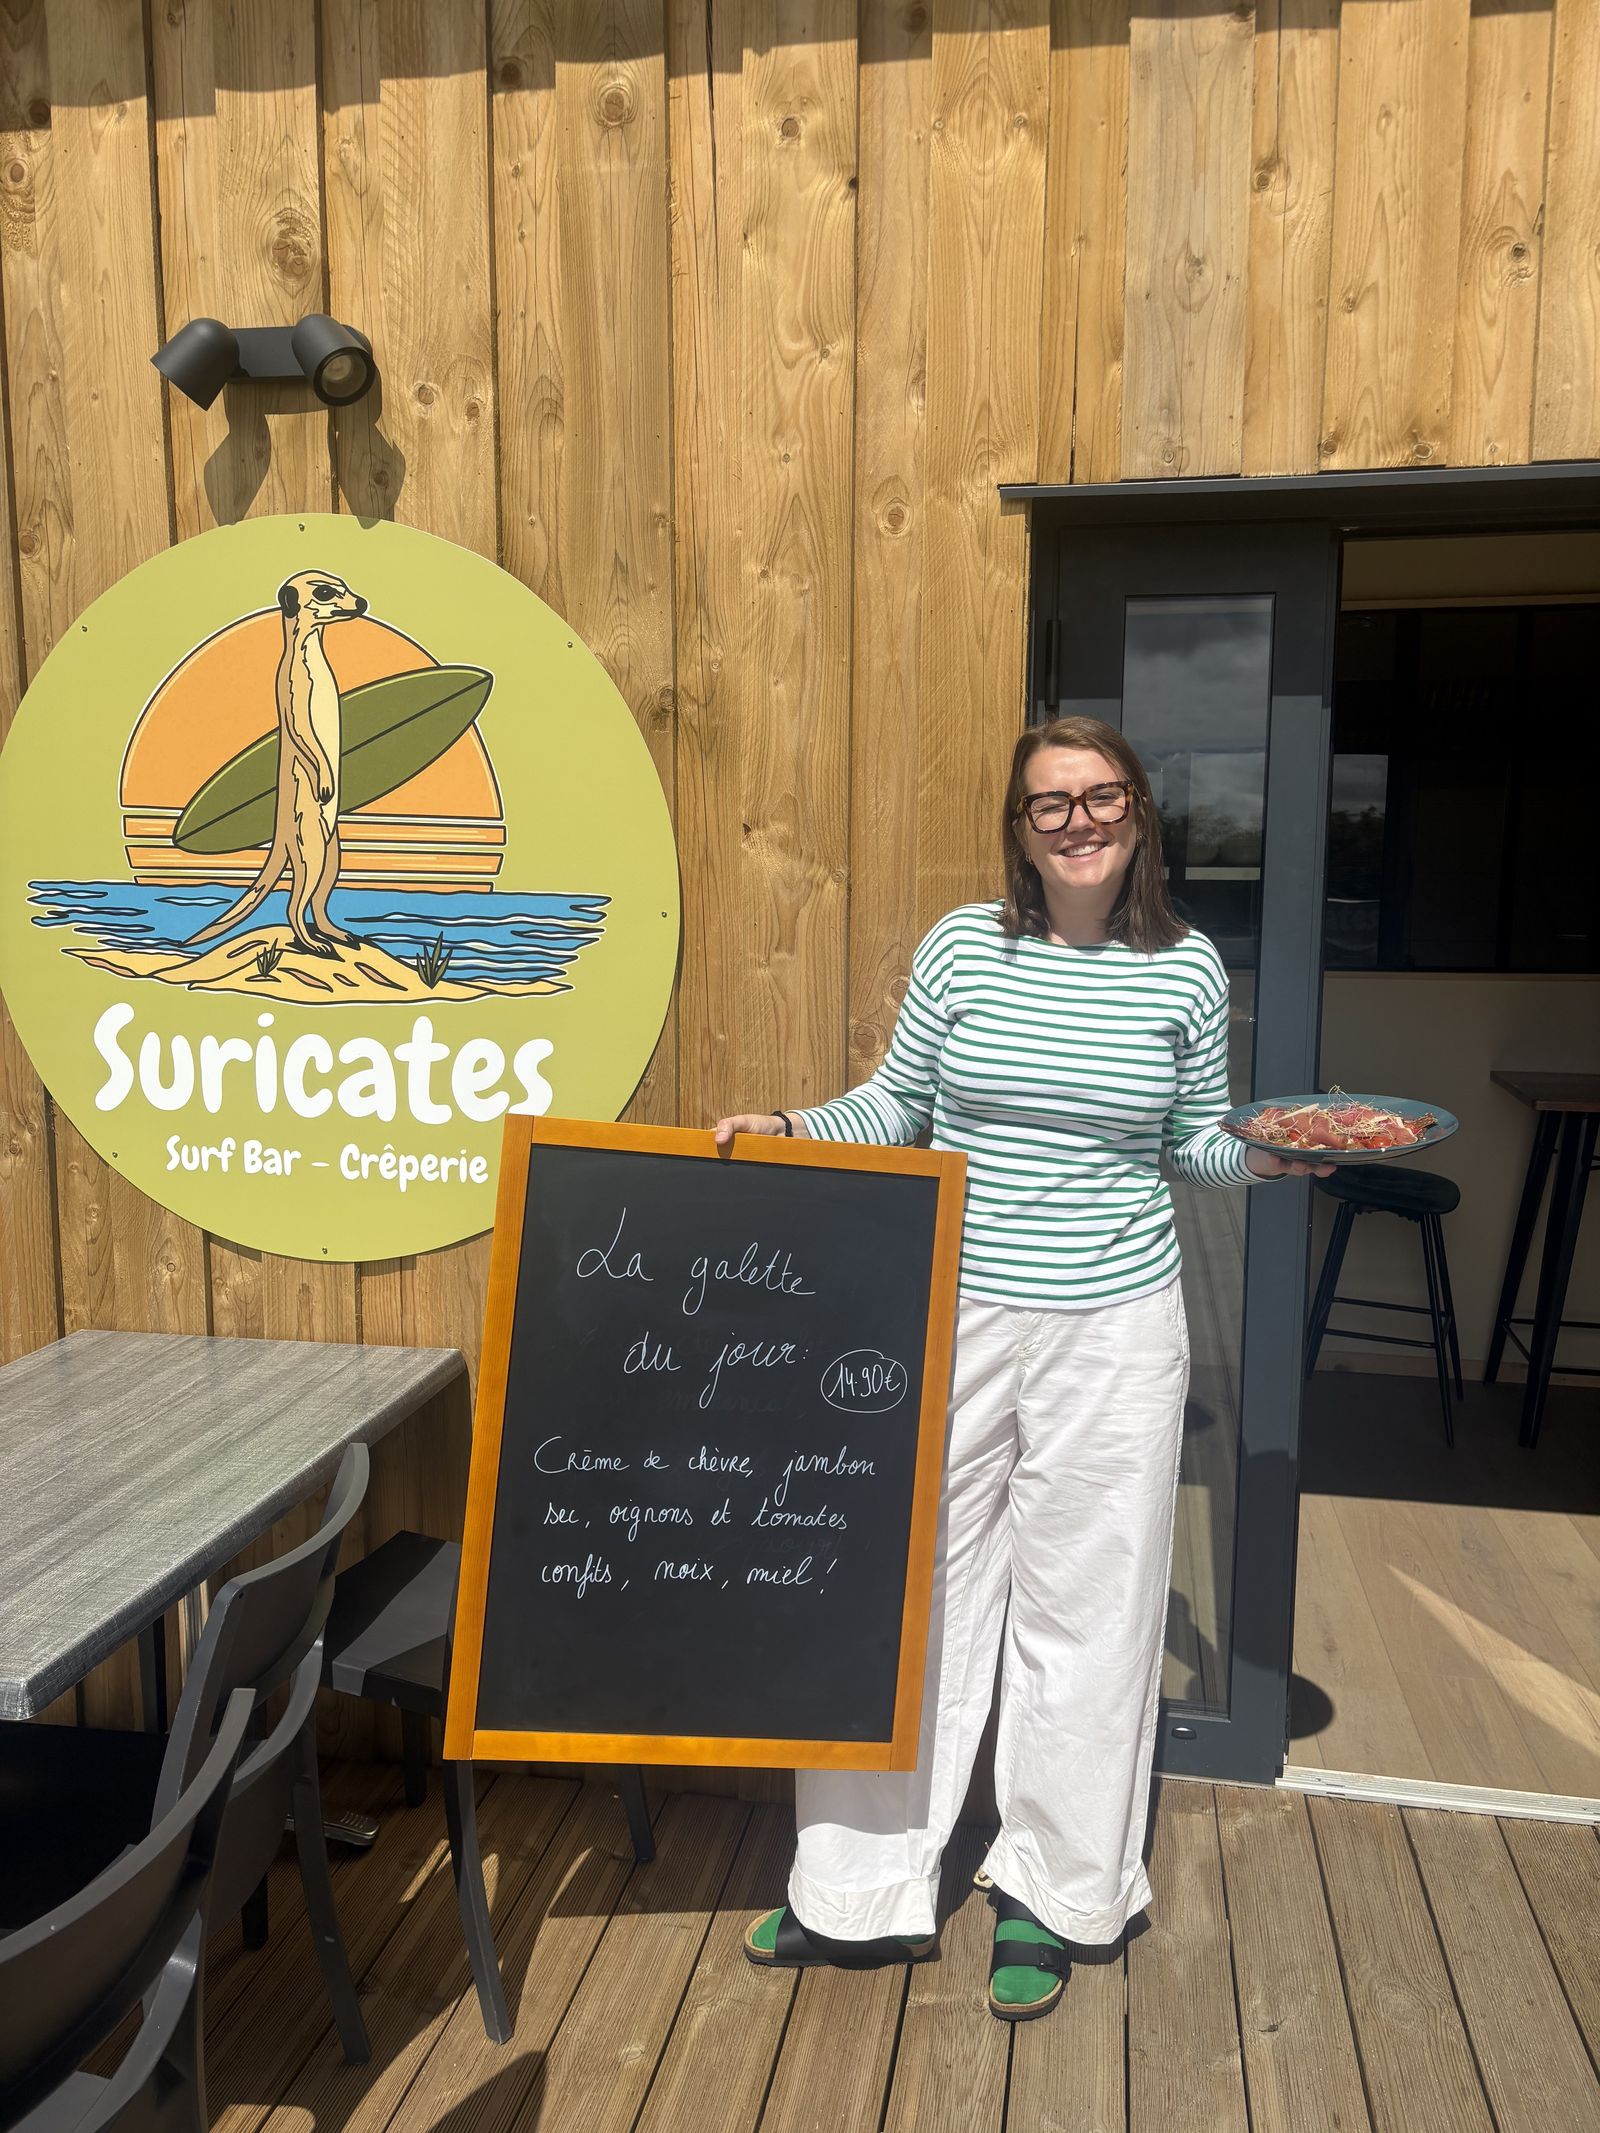 Suricates
Surf Bar – Crêperie
La galette
du jour:
14.90€
Crème de chèvre, jambon
sec, oignons et tomates
confits, noix, miel!